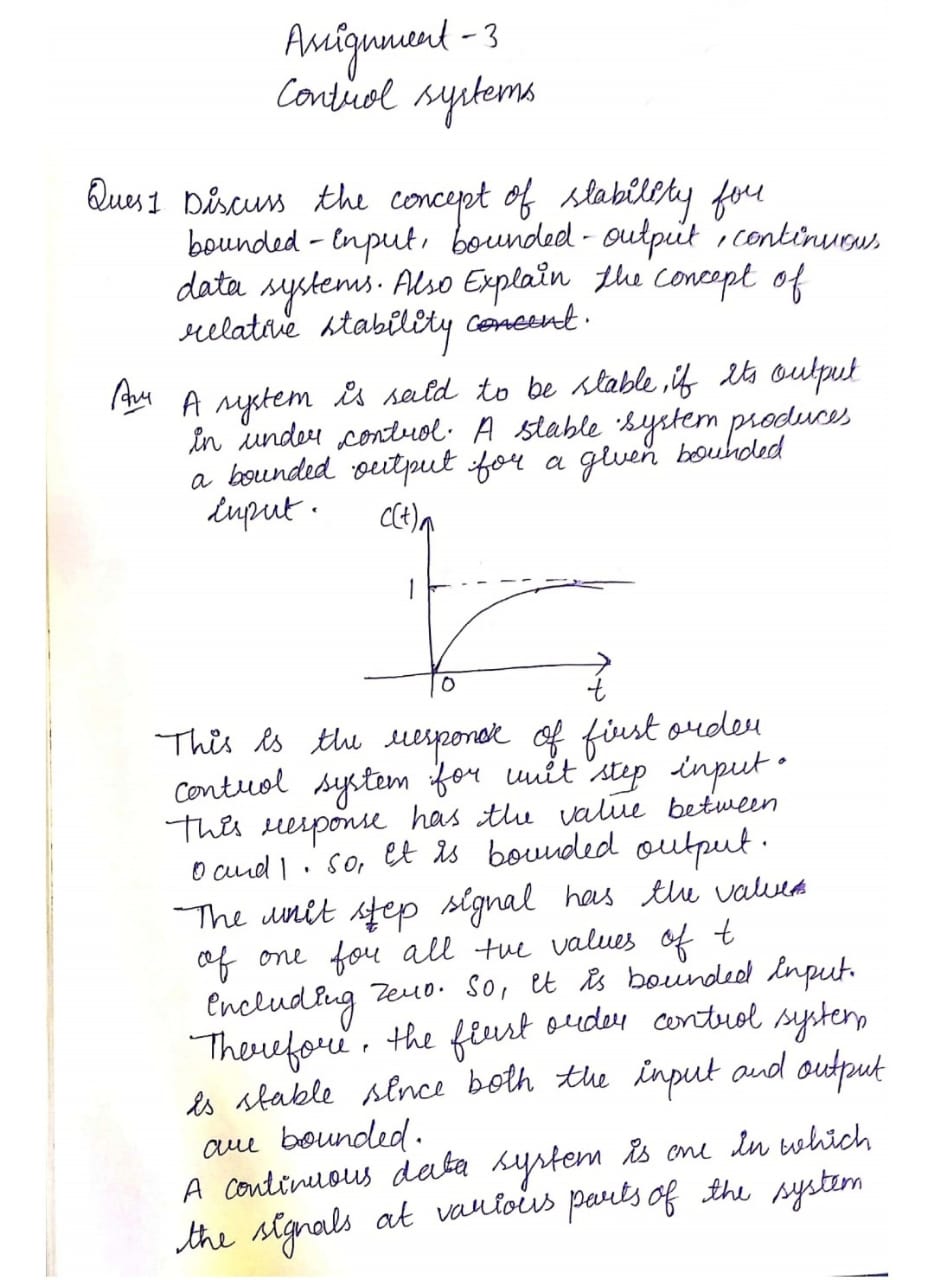 Assignment - 3
Control systems
Ques 1 Discuss the concept of stability for
bounded - input, bounded - output, continuous
data systems. Also Explain the concept of
relative stability concent.
Ans A system is said to be stable, if its output
in under control. A stable system produces
a bounded output for a given bounded
input.
c(t)
1
0
t
This is the response of first order
control system for unit step input.
This response has the value between
0 and 1. So, it is bounded output.
The unit step signal has the value
of one for all tve values of t
including zero. So, it is bounded input.
Therefore, the first order control system
is stable since both the input and output
are bounded.
A continuous data system is one in which
the signals at various parts of the system